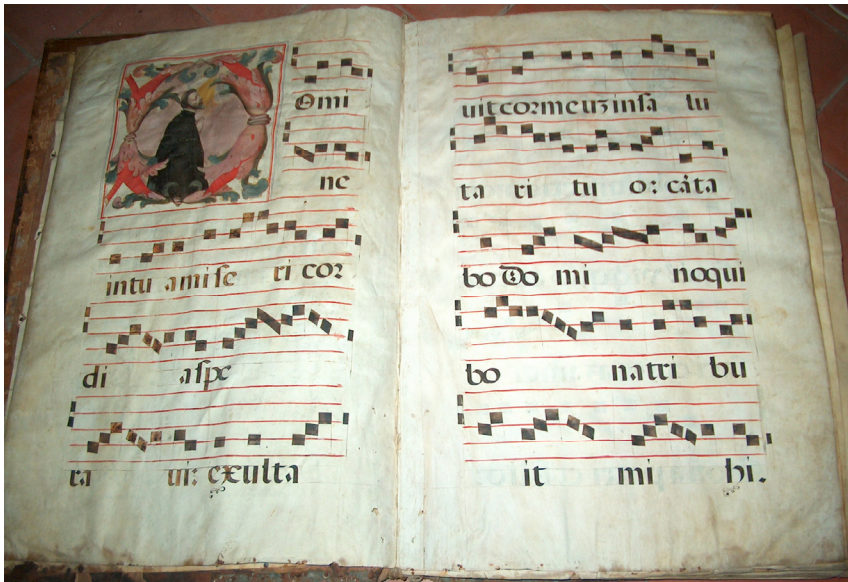 Omi
ne
intu amiſe ri coꝛ
di aſpe
ra ui: exulta
uit coꝛ meuʒ inſa lu
ta ri tu o: cãta
bo Do mi no qui
bo na tri bu
it mi hi.